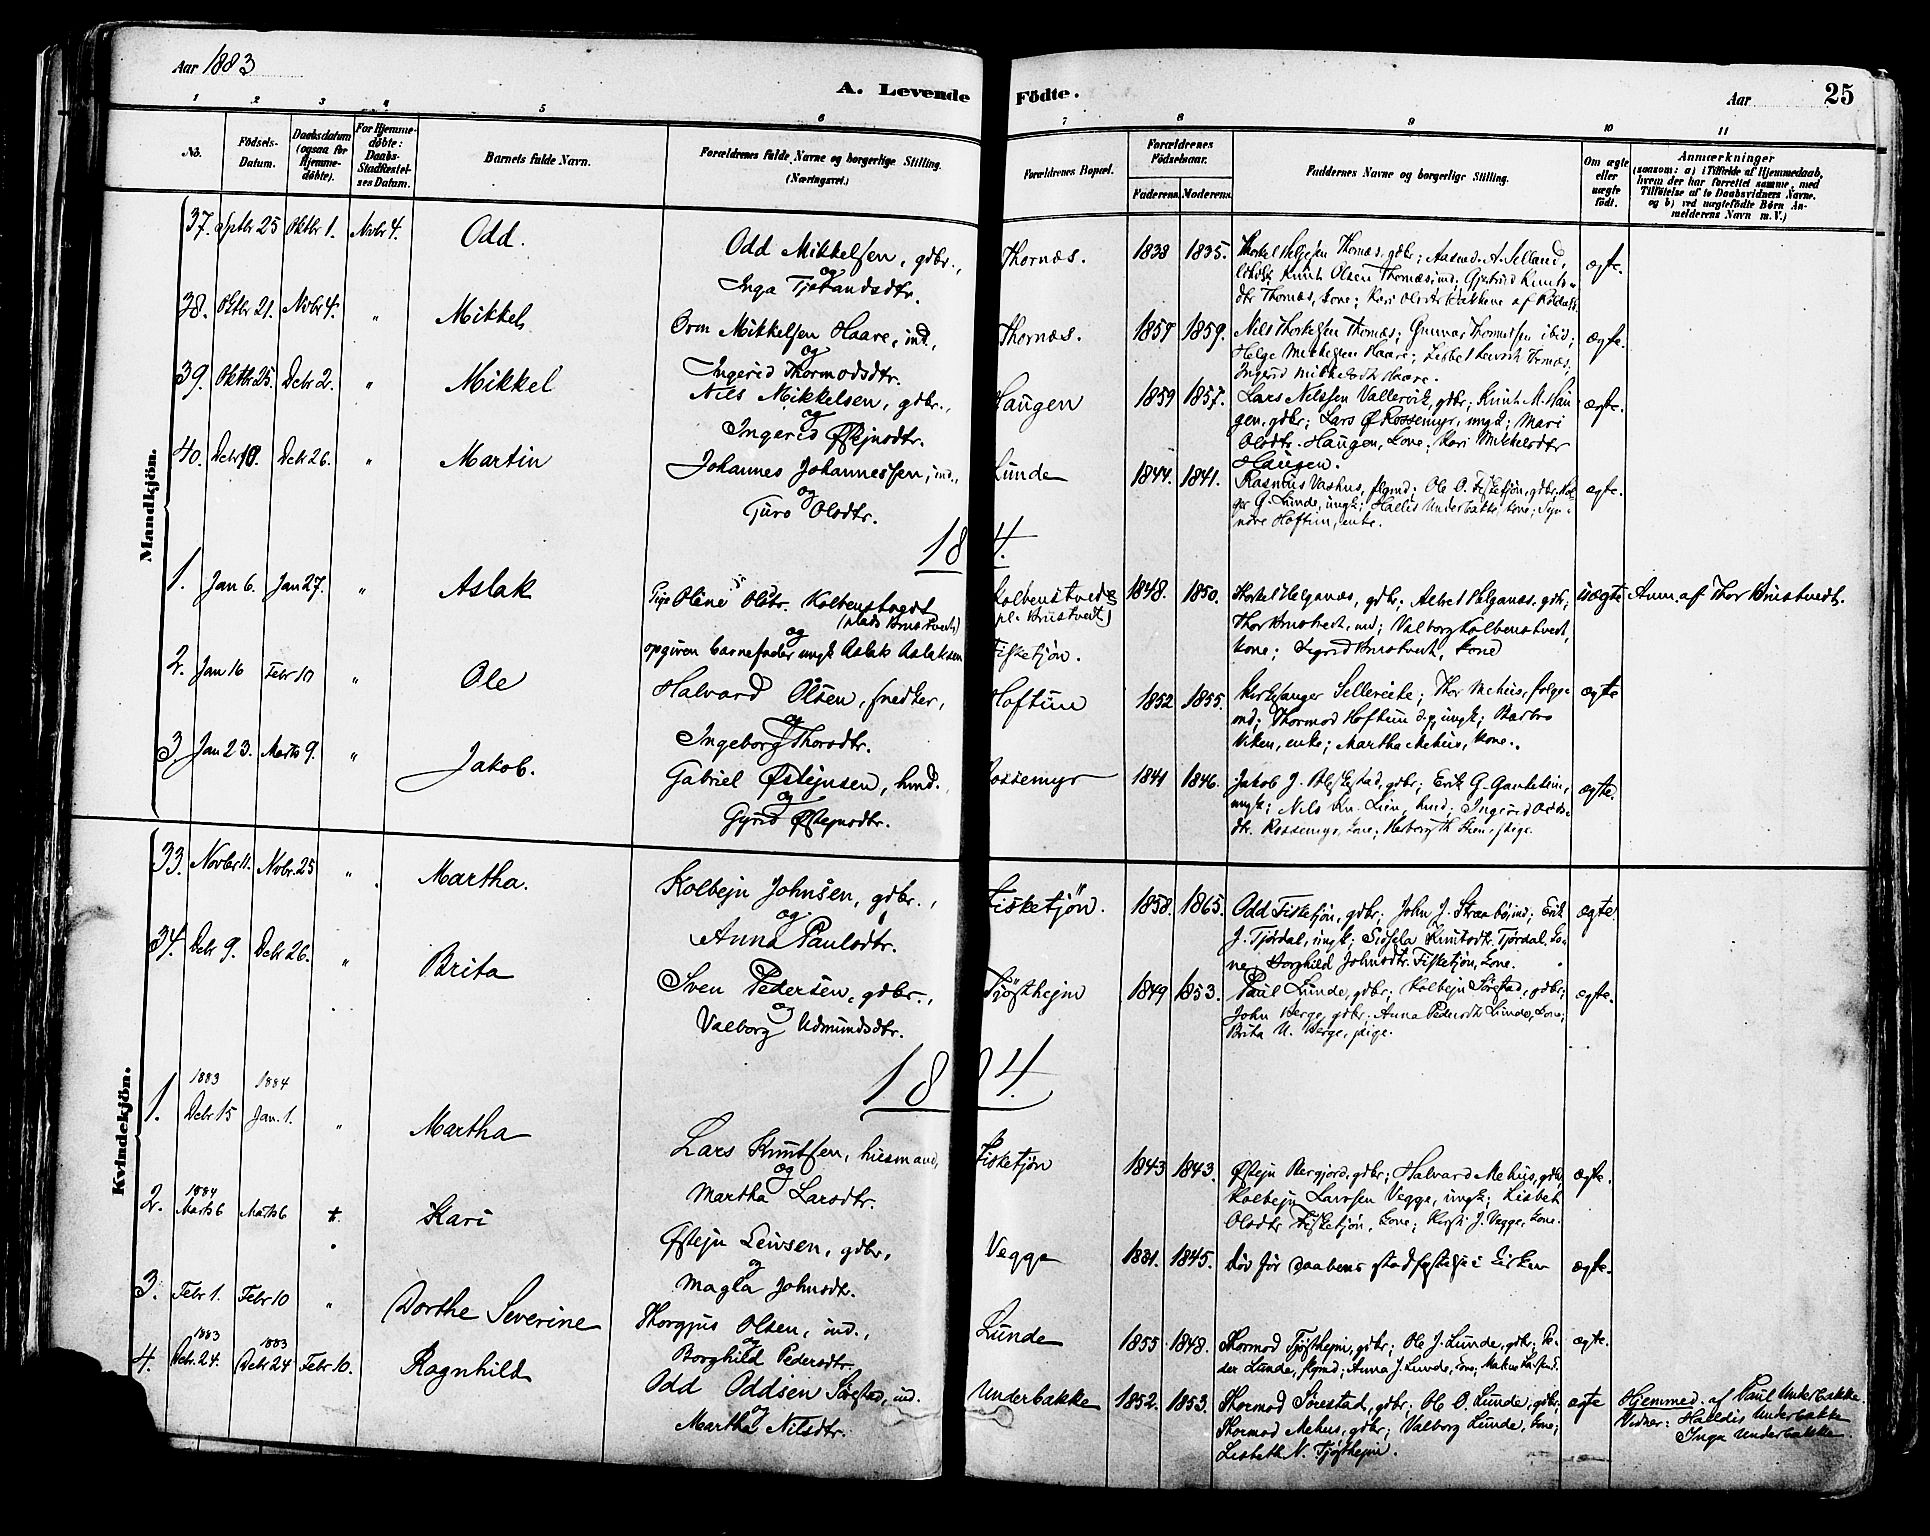 Aar 1883
A. Levende Fødte.
Aar 25
1 2 3 4 5 6 7 8 9 10 11
No.
Fødsels-Datum.
Daabsdatum (ogsaa for Hjemmedøbte).
For Hjemmedøbte: Daabs-Stadfæstelses Datum.
Barnets fulde Navn.
Forældrenes fulde Navne og borgerlige Stilling.
(Næringsvei.)
Forældrenes Bopæl.
Forældrenes Fødselsaar.
Faderens. Moderens.
Faddernes Navne og borgerlige Stilling.
Om ægte eller uægte født.
Anmærkninger
(saasom: a) i Tilfælde af Hjemmedaab, hvem der har forrettet samme, med Tilføielse af to Daabsvidners Navne. og b) ved uægtefødte Børn Anmelderens Navn m. V.)
Mandkjön.
37. Sptbr 25 Oktbr 1. Novbr 4. Odd. Odd Mikkelsen, gdbr., Thornæs. 1838 1835. ægte.
og
Inga Tjetandsdtr.
38. Oktbr 21. Novbr 4. " Mikkel Orm Mikkelsen Haare, ind., Thornæs. 1859 1859. Nils Thorkelsen Thornæs; Gunnar Thornessen ibid; ægte.
og
Ingerid Thormodsdtr.
Helge Mikkelsen Haare;
Ingerid Mikkelsdtr Haare.
39. Oktbr 25. Debr 2. " Mikkel Nils Mikkelsen, gdbr., Haugen 1859 1857. Lars Nilssen Vallervik, gdbr; Knut M. Hau- ægte.
og
Ingerid Østejnsdtr.
gen, gdbr; Lars Ø Rossemyr, ungk; Mari
Olsdtr. Haugen, kone; Kari Mikkelsdtr
Haugen.
40. Debr 10. Debr 26. " Martin Johannes Johannessen, ind., Lunde 1844. 1841. Rasmus Vashus, flgmd; Ole O. Fisketjøn, gdbr; ægte.
og
Guro Olsdtr.
G. Lunde, ungk; Halldis Underbakke, kone; Syn-
nøve Hoftun, enke.
1884.
1. Jan 6. Jan 27. " Aslak Pige Oline Olsdtr. Kolbenstvedt Kolbenstvedt 1848. 1850. Thorkel Helganæs, gdbr. Helganæs, gdbr; uægte Anm. af Thor Brustvedt.
(plads Brustvedt) (pl. Brustvedt)
og
opgiven barnefader ungk Aslak Aslaksen Fisketjøn.
Thor Brustvedt, ind; Valborg Kolbenstvedt,
kone; Sigrid Brustvedt, kone
2. Jan 16 Febr 10 " Ole Halvard Olsen, snedker, Hoftun 1852 1855. Kirkesanger Sellereite; Thor Mehus, følge- ægte
og
Ingeborg Thorsdtr.
md; Thormod Hoftun d.y, ungk; Barbro
Viken, enke; Martha Mehus, kone.
3. Jan 23. Marts 9. " Jakob. Gabriel Østejnsen, hmd. Rossemyr 1841 1846. Jakob J. gdbr; Erik G. ægte.
og
Gyrid Østejnsdtr.
ungk; Nils Kn. Lien, hmd; Ingerid
dtr. Rossemyr, kone; Herborg Th pige.
Kvindekjön.
33. Novbr 11. Novbr. 25 " Martha. Kolbejn Johnsen, gdbr., Fisketjön. 1858. 1865. Odd Fisketjön, gdbr; John J. Straabø, ind; Erik ægte.
og
Anna Paulsdtr.
J. Tjørdal, ungk; Sissela Knutsdtr. Tjørdal, ko-
ne; Borghild Johnsdtr. Fisketjön, kone.
34. Debr 9. Debr 26. " Brita Sven Pedersen, gdbr., Tjösthejm 1849 1853. Paul Lunde, gdbr; Kolbejn Sørstad, gdbr; ægte.
og
Valborg Udmundsdtr.
John Berge, gdbr; Anna Pedersdtr Lunde, kone;
Brita U. Berge, pige.
1884.
1883 1884
1. Debr 15 Jan. 1. " Martha Lars Knutsen, husmand, Fisketjön 1843 1843. Østejn Bergjord, gdbr; Halvard Mehus, gdbr; ægte.
og
Martha Larsdtr.
Kolbejn Larssen Vegge, ungk; Lisbet
Olsdtr Fisketjön, kone; J. Vegge, kone.
1884
2. Marts 6 Marts 6 †. Kari Østejn Leivsen, gdbr, Vegge 1831. 1845. død før daabens stadfæstelse i kirken ægte.
og
Magla Johnsdtr.
3. Febr 1. Febr 10 " Dorthe Severine Thorgjus Olsen, ind., Lunde 1855. 1848. Thormod Tjøsthejm, gdbr; Ole J. Lunde, gdbr; Pe- ægte.
og
Borghild Pedersdtr.
der Lunde, flgmd; Anna J. Lunde, kone;
1883 1883
4. Debr. 24. Debr 24 Febr 10. Ragnhild Odd Oddsen Sørestad, ind. Underbakke 1852. 1853. Thormod Sørestad, gdbr; Ole O. Lunde, gdbr; ægte Hjemmed. af Paul Underbakke.
og
Martha Nilsdtr.
Thormod Mehus, gdbr; Valborg Lunde, kone; Vidner: Halldis Underbakke
Lisbeth N. Tjøsthejm. Inga Underbakke.